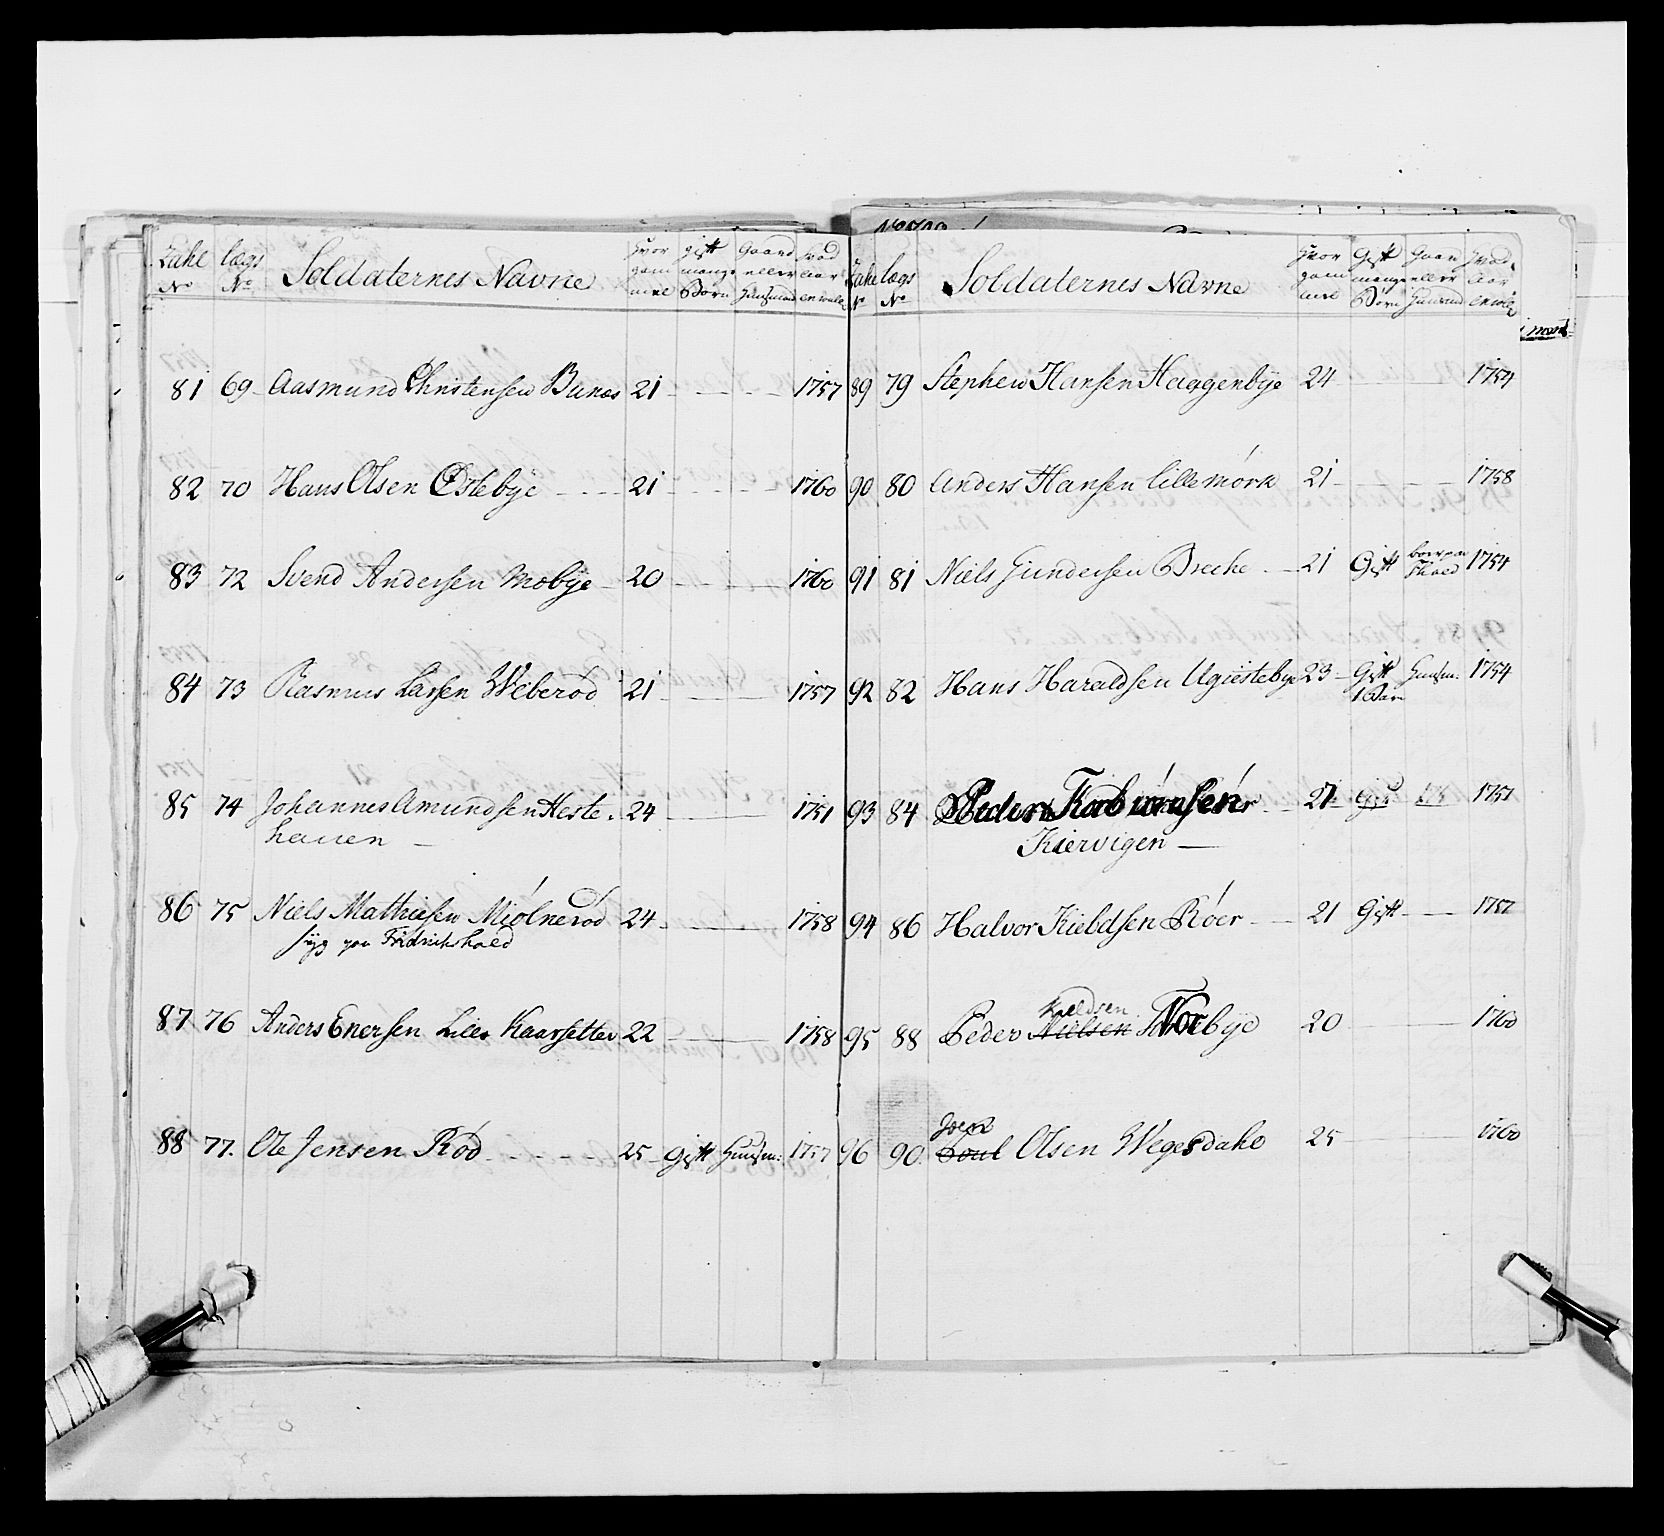 Tahl No
lægs No
Soldaternes Navne
Hvor gaml
gift mange Børn
Gaard eller Huusmand
Hvad Aar
81 69 Aasmund Christensen Bunæs 21 1757
82 70 Hans Olsen Østebÿe 21 1760
83 72 Svend Andersen Mobÿe 20 1760
84 73 Rasmus Larsen Weberød 21 1757
85 74 Johannes Amundsen Heste- 24 1751
hauen
86 75 Niels Mathiesen Miølnerød 24 1758
sÿg paa Fridrichshald
87 76 Anders Enersen Lille Kaarsetter 22 1758
88 77. Ole Jensen Rød 25 Gift Huusm: 1757
Tahl No
lægs No
Soldaternes Navne
Hvor gaml
Gift mange Børn
Gaard eller Huusmd
Hvad Aar
89 79 Stephen Hansen Haggenbÿe 24 1754
90 80 Anders Hansen Lille mørk 21 1758
91 81 Niels Gundersen Breche 21 Gift boer paa 1754
92 82 Hans Haraldsen Ugiestebye 23 Gift Huusm: 1754
1 Barn
93 84 Peder Torbiørnsen 27 1751
Kiervigen
94 86 Halvor Kieldsen Røer 21 Gift 1757
Kieldsen
95 88 Peder Nielsen Norebÿe 20 1760
Joen
96 90. Poul Olsen Wegesdahl 25 1760